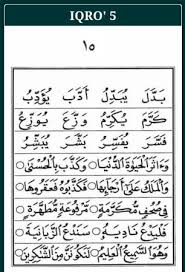 IQRO' 5
١٥
بَدَّلَ يُبَدِّلُ أَدَّبَ يُؤَدِّبُ
كَرَّمَ يُكَرِّمُ وَزَّعَ يُوَزِّعُ
فَسَّرَ يُفَسِّرُ بَشَّرَ يُبَشِّرُ
وَءَاثَرَ الْحَيَوٰةَ الدُّنْيَا ○ وَكَذَّبَ بِالْحُسْنَىٰ
وَالْمَلَكُ عَلَىٰ أَرْجَآئِهَا ○ فَكَذَّبُوهُ فَعَقَرُوهَا
فِي صُحُفٍ مُكَرَّمَةٍ ○ مَرْفُوعَةٍ مُطَهَّرَةٍ ○
فَلْيَدْعُ نَادِيَهُ ○ سَنَدْعُ الزَّبَانِيَةَ ○
وَهُوَ السَّمِيعُ الْعَلِيمُ ○ لَنَكُونَنَّ مِنَ الشَّٰكِرِينَ